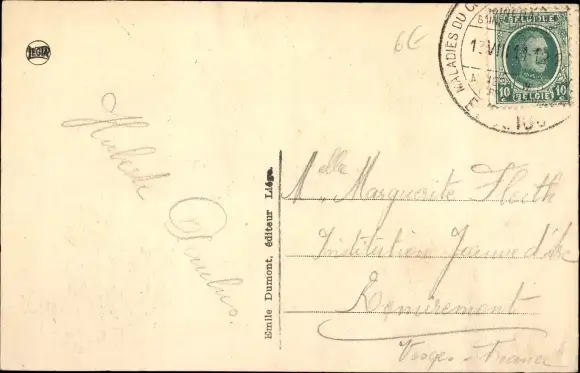 LEGIA
6€
MALADIES DU
BELGIQUE
10 BELGIË 10
Huberte
Emile Dumont, éditeur Liége.
Melle Marguerite Fleith
Institution Jeanne d'Arc
Remiremont
Vosges - France